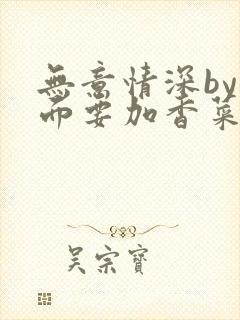 無意情深by
而要加香菜
吴宗寶